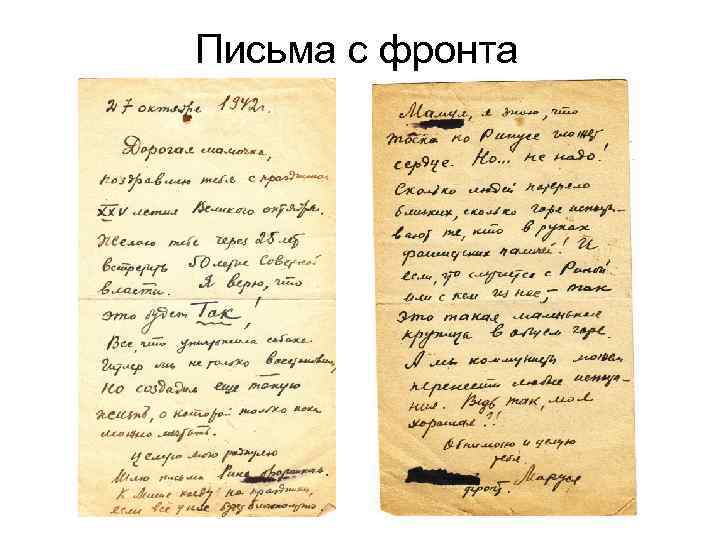 Письма с фронта
27 октября 1942 г.
Дорогая мамочка,
поздравляю тебя с праздником
XXV летия Великого октября.
Желаю тебе через 25 лет
встретить 50 летие Советской
власти. Я верю, что
это будет Так!
Все, что уничтожила собака
Гитлер мы не только восстановим,
но создадим еще такую
жизнь, о которой только пока
можно мечтать.
Целую мою родную
Шлю письма
К Мише на праздники,
если всё у нее будет благополучно.
Мамуля, я знаю, что
тоска по Ринусе гложет
сердце. Но... не надо!
Сколько людей потеряло
близких, сколько горе испыты-
вают те, кто в руках
фашистских палачей! И
если, что случится с Риной
или с кем из нас, - так
это такая маленькая
крупица в общем горе.
А мы коммунисты можем
перенести любые испыта-
ния. Ведь так, моя
хорошая?!
Обнимаю и целую
тебя.
Маруся
фронт.